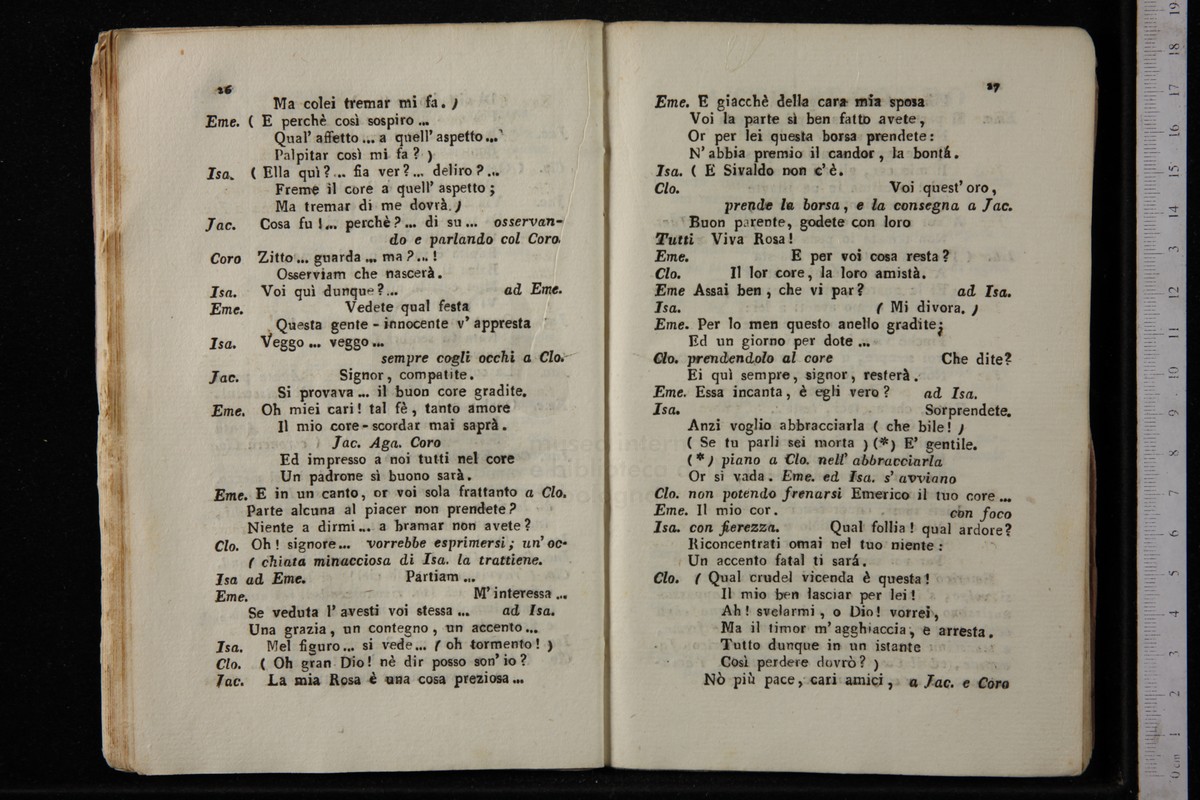 26
Ma colei tremar mi fa. )
Eme. ( E perchè così sospiro ...
Qual' affetto ... a quell' aspetto ...
Palpitar così mi fa ? )
Isa. ( Ella quì ? ... fia ver ? ... deliro ? ...
Freme il core a quell' aspetto ;
Ma tremar di me dovrà. )
Jac. Cosa fu ! ... perchè ? ... di su ... osservan-
do e parlando col Coro.
Coro Zitto ... guarda ... ma ? ... !
Osserviam che nascerà.
Isa. Voi quì dunque ? ... ad Eme.
Eme. Vedete qual festa
Questa gente - innocente v' appresta
Isa. Veggo ... veggo ...
sempre cogli occhi a Clo.
Jac. Signor, compatite.
Si provava ... il buon core gradite.
Eme. Oh miei cari ! tal fè , tanto amore
Il mio core - scordar mai saprà.
Jac. Aga. Coro
Ed impresso a noi tutti nel core
Un padrone sì buono sarà.
Eme. E in un canto, or voi sola frattanto a Clo.
Parte alcuna al piacer non prendete ?
Niente a dirmi ... a bramar non avete ?
Clo. Oh ! signore ... vorrebbe esprimersi ; un' oc-
( chiata minacciosa di Isa. la trattiene.
Isa ad Eme. Partiam ...
Eme. M' interessa ...
Se veduta l' avesti voi stessa ... ad Isa.
Una grazia , un contegno , un accento ...
Isa. Mel figuro ... si vede ... ( oh tormento ! )
Clo. ( Oh gran Dio ! nè dir posso son' io ?
Jac. La mia Rosa è una cosa preziosa ...
27
Eme. E giacchè della cara mia sposa
Voi la parte sì ben fatto avete ,
Or per lei questa borsa prendete :
N' abbia premio il candor , la bontá.
Isa. ( E Sivaldo non c' è.
Clo. Voi quest' oro ,
prende la borsa , e la consegna a Jac.
Buon parente, godete con loro
Tutti Viva Rosa !
Eme. E per voi cosa resta ?
Clo. Il lor core , la loro amistà.
Eme Assai ben , che vi par ? ad Isa.
Isa. ( Mi divora. )
Eme. Per lo men questo anello gradite;
Ed un giorno per dote ...
Clo. prendendolo al core Che dite?
Ei quì sempre , signor , resterà.
Eme. Essa incanta , è egli vero ? ad Isa.
Isa. Sorprendete.
Anzi voglio abbracciarla ( che bile ! )
( Se tu parli sei morta ) (*) E' gentile.
( * ) piano a Clo. nell' abbracciarla
Or si vada. Eme. ed Isa. s' avviano
Clo. non potendo frenarsi Emerico il tuo core ...
Eme. Il mio cor. con foco
Isa. con fierezza. Qual follia ! qual ardore?
Riconcentrati omai nel tuo niente :
Un accento fatal ti sará.
Clo. ( Qual crudel vicenda è questa !
Il mio ben lasciar per lei !
Ah ! svelarmi , o Dio ! vorrei ,
Ma il timor m' agghiaccia , e arresta.
Tutto dunque in un istante
Così perdere dovrò ? )
Nò più pace , cari amici , a Jac. e Coro